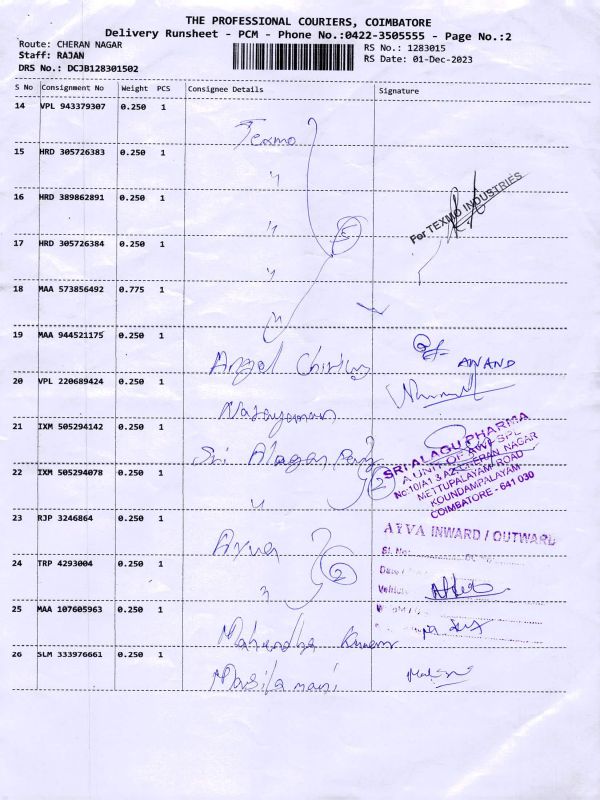 THE PROFESSIONAL COURIERS, COIMBATORE
Delivery Runsheet - PCM - Phone No.:0422-3505555 - Page No.:2
Route: CHERAN NAGAR
RS No.: 1283015
Staff: RAJAN
RS Date: 01-Dec-2023
DRS No.: DCJB128301502
S No Consignment No Weight PCS Consignee Details Signature
14 VPL 943379307 0.250 1
Texmo
15 HRD 305726383 0.250 1
"
16 HRD 389862891 0.250 1
"
For TEXMO INDUSTRIES
17 HRD 305726384 0.250 1
5
"
18 MAA 573856492 0.775 1
"
19 MAA 944521175 0.250 1
Angel
ANAND
20 VPL 220689424 0.250 1
Narayanan
21 IXM 505294142 0.250 1
Sri Alagar
SRI ALAGU PHARMA
A UNIT OF AWI SPL
No:10/A1 & A2 CHERAN NAGAR
METTUPALAYAM ROAD
KOUNDAMPALAYAM
COIMBATORE - 641 030
22 IXM 505294078 0.250 1
" 2
23 RJP 3246864 0.250 1
AYVA INWARD / OUTWARD
Sl. No:
24 TRP 4293004 0.250 1
" 2
Date
Vehicle
25 MAA 107605963 0.250 1
Mahendra Kumar
26 SLM 333976661 0.250 1
Masilamani